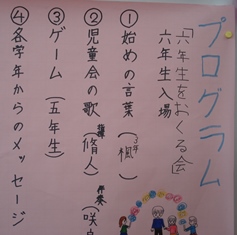 プログラム
「六年生をおくる会」
六年生入場
①始めの言葉(楓)
②児童会の歌 指揮(脩人) 伴奏(咲良
③ゲーム(五年生)
④各学年からのメッセージ